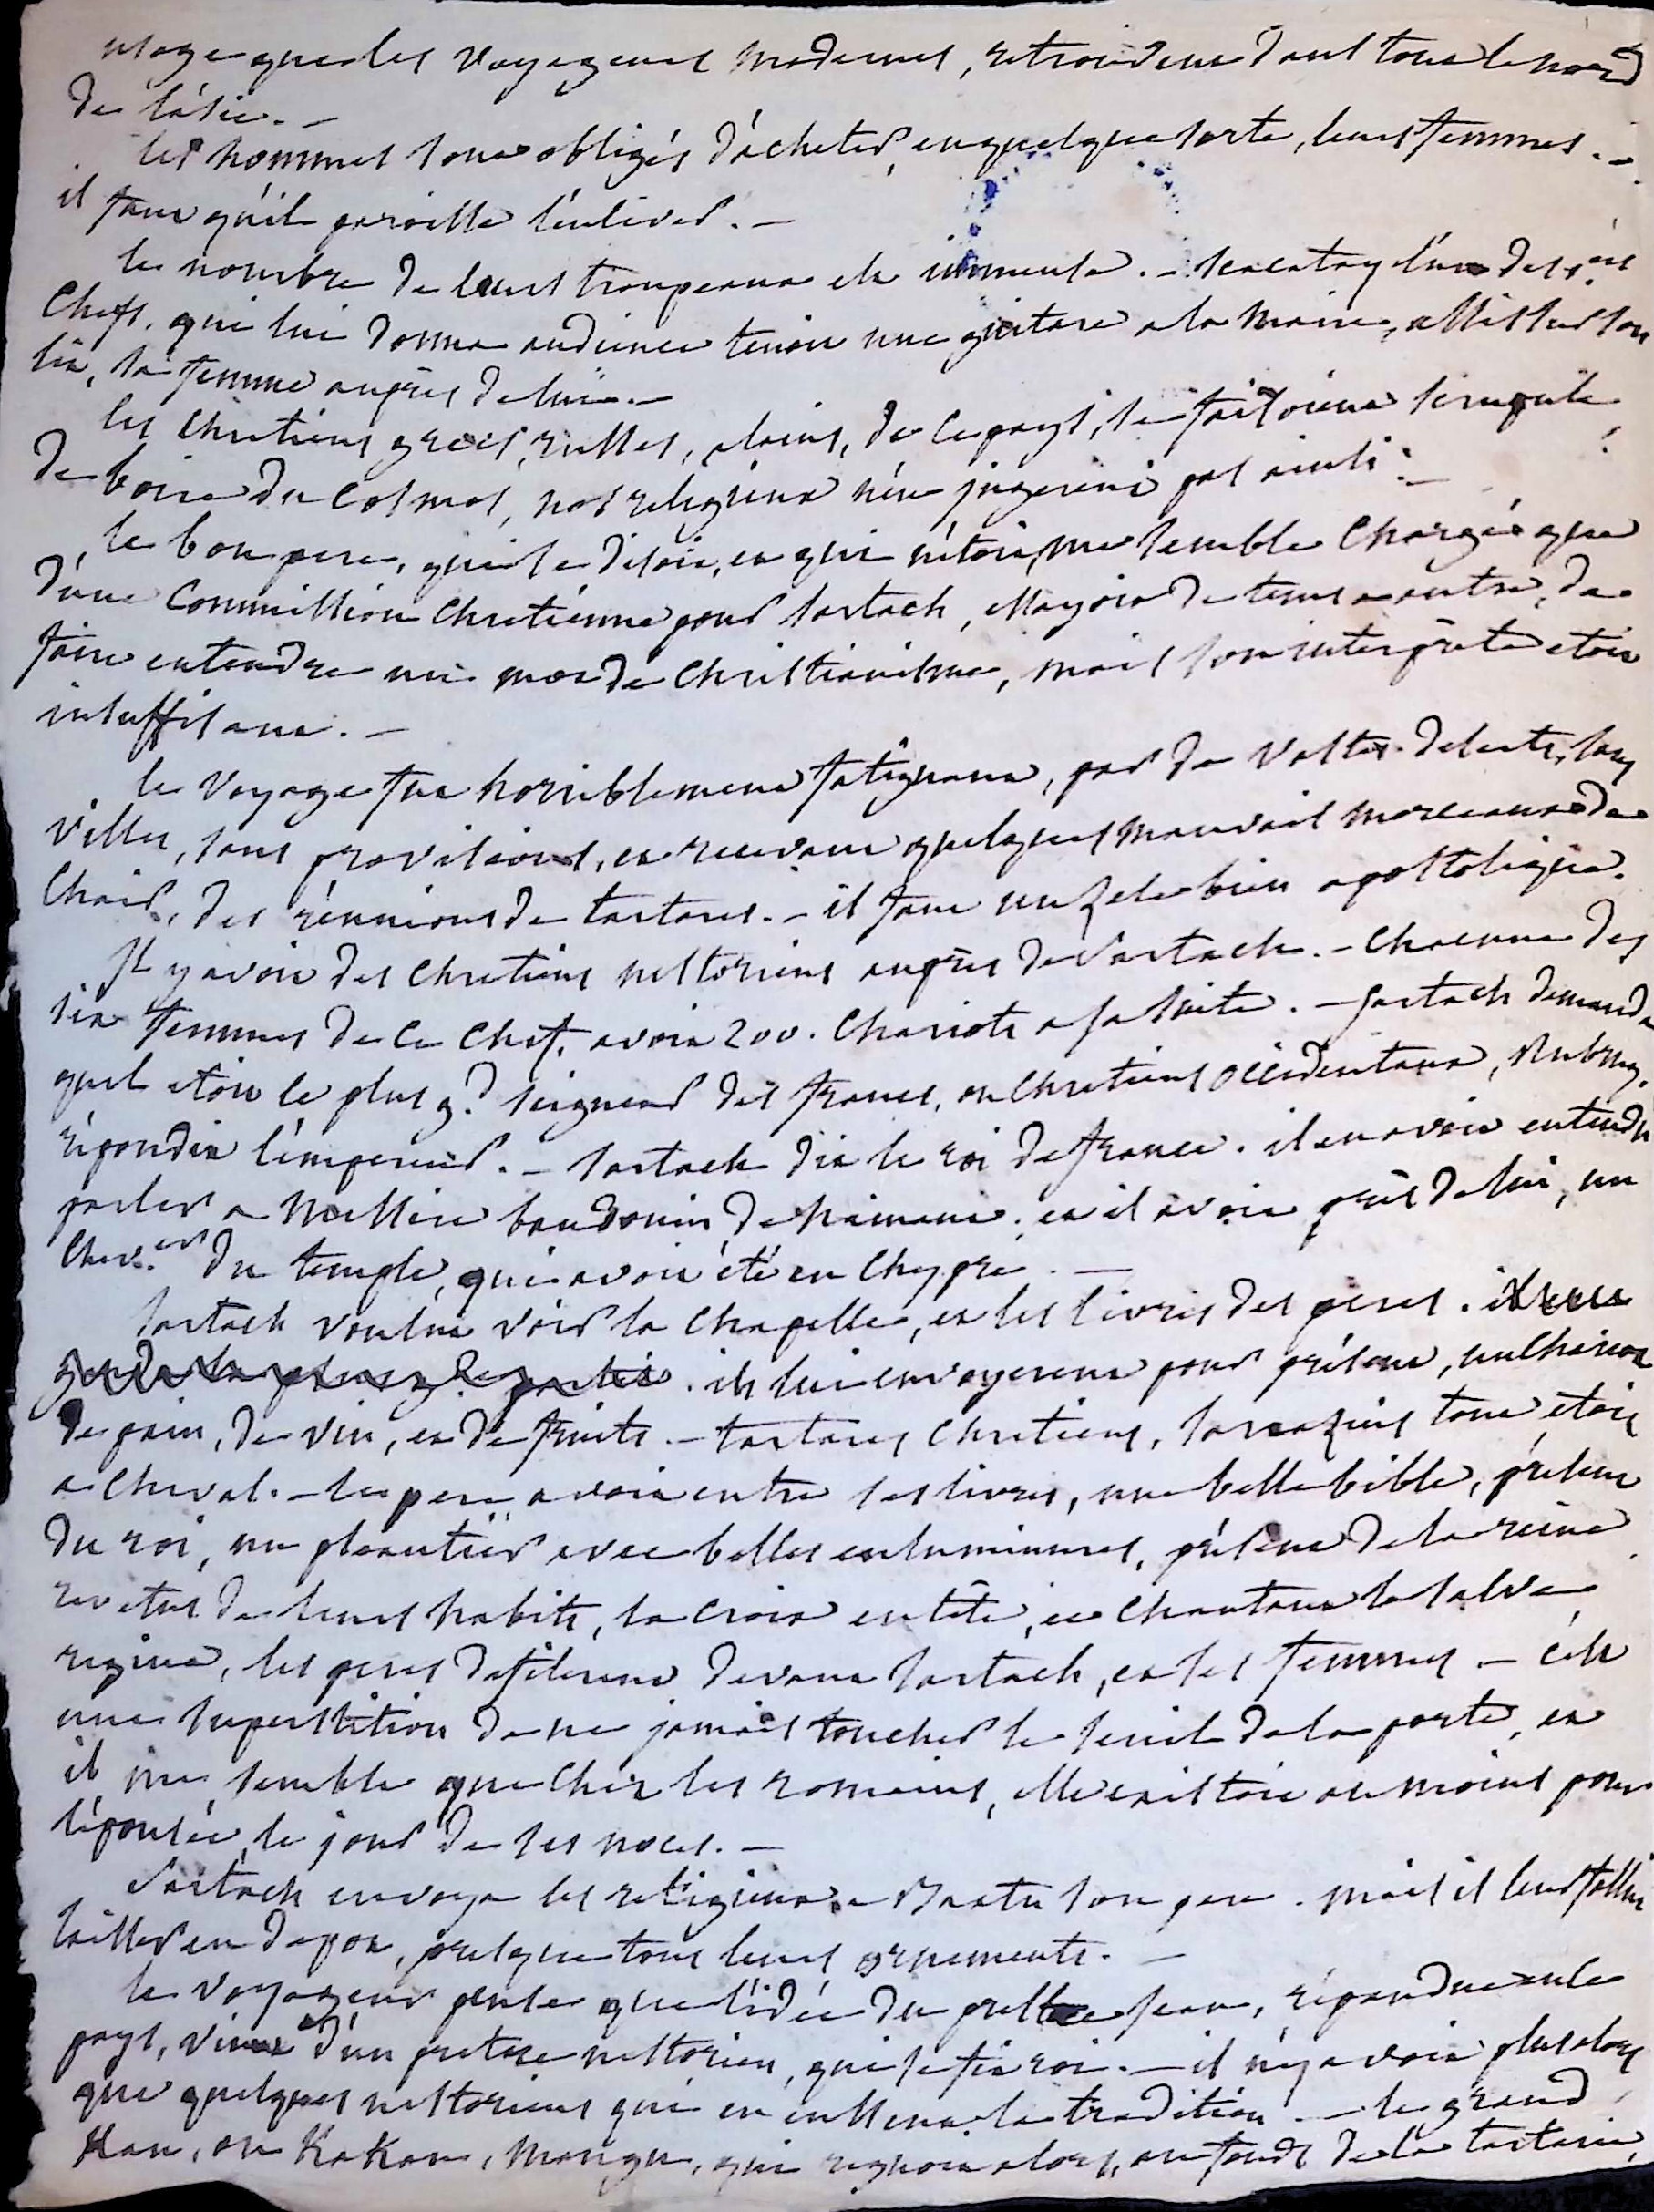 usage que les voyageurs modernes, retrouvent dans tout le nord
de l'asie. –
les hommes sont obligés d'acheter, en quelque sorte, leurs femmes. –
il faut qu'il paroisse l'enlever. –
le nombre de leurs troupeaux est immense. – scacatay l'un des
chefs, qui lui donna audience tenoit une guitare a la main, assis sur son
lit, sa femme auprès de lui. –
les chretiens grecs, russes, alains, de ce pays, se faisoient scrupule
de boire du cosmos, nos religieux n'en jugerent pas ainsi. –
le bon pere, qui le disoit, et qui n'étoit, me semble chargé que
d'une commission chretienne pour sartach, essayoit de tems a autre, de
faire entendre un mot de christianisme, mais son interprète etoit
insuffisant. –
le voyage fut horriblement fatiguant, par de vastes deserts, sans
villes, sans provisions, et recevant quelques mauvais morceaux de
chair, des réunions de tartares. – il faut un zele bien apostolique.
Il y avoit des chretiens nestoriens auprès de Sartach. – chacune des
six femmes de ce chef, avoit 200. chariots a sa suite. – sartach demanda
quel etoit le plus gd seigneur des francs, ou chretiens occidentaux, Rubruq.
répondit l'empereur. – sartach dit le roi de france. il en avoit entendu
parler a Messire baudouin de hainaut. et il avoit près de lui, un
chev.er du temple, qui avoit été en Chypre. –
sartach voulut voir la chapelle, et les livres des peres.
ils lui envoyerent pour présent, un chariot
de pain, de vin, et de fruits. – tartares chretiens, sarrazins tout étoit
a cheval. – le pere avoit entre ses livres, une belle bible, présent
du roi, un pseautier avec belles enluminures, présent de la reine.
revetus de leurs habits, la croix en tête, et chantant le salve
regina, les peres defilerent devant sartach, et ses femmes. – c'est
une superstition de ne jamais toucher le seuil de la porte, et
il me semble que chez les romains, elle existoit au moins pour
l'épousée, le jour de ses noces. –
Sartach envoya les religieux a Baatu son pere. mais il leur fallut
laisser en depot, presque tous leurs ornements. –
le voyageur pense que l'idée du prestre jean, répandue en ce
pays, vient d'un pretre nestorien, qui se fit roi. – il n'y avoit plus alors
que quelques nestoriens qui en eussent la tradition. – le grand
Kan, ou KaKan, Mangu, qui regnoit alors, au fonds de la tartarie,